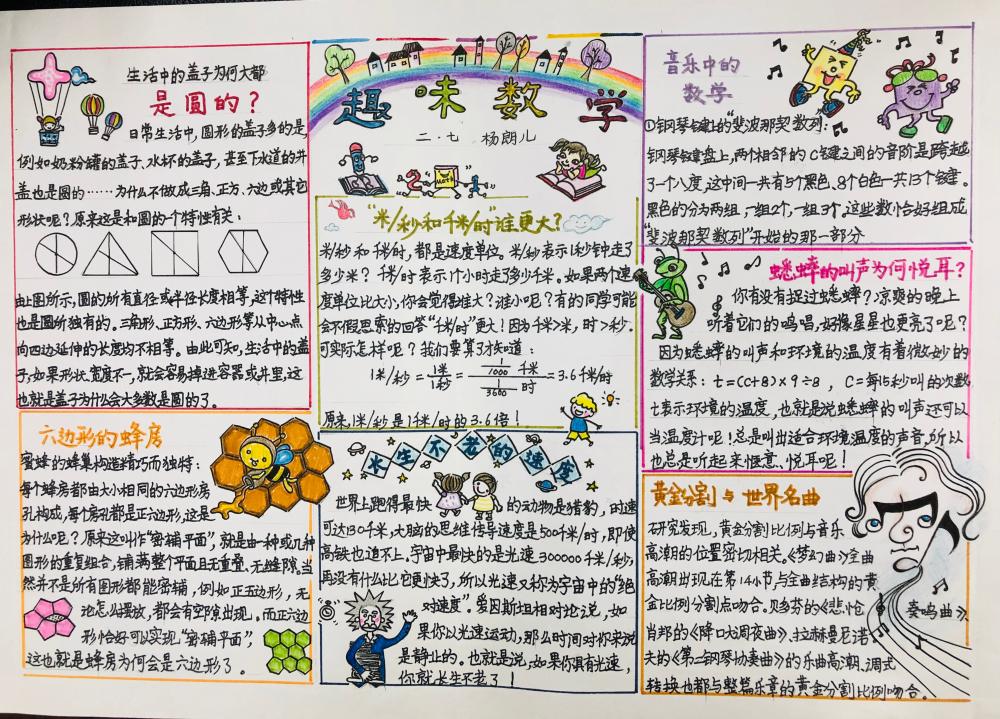 生活中的盖子为何大都
是圆的？
日常生活中，圆形的盖子多的是，
例如奶粉罐的盖子、水杯的盖子，甚至下水道的井
盖也是圆的……为什么不做成三角、正方、六边或其它
形状呢？原来这是和圆的一个特性有关：
由上图所示，圆的所有直径或半径长度相等，这个特性
也是圆所独有的。三角形、正方形、六边形等从中心点
向四边延伸的长度均不相等。由此可知，生活中的盖
子，如果形状宽度不一，就会容易掉进容器或井里，这
也就是盖子为什么会大多数是圆的了。
六边形的蜂房
蜜蜂的蜂巢构造精巧而独特：
每个蜂房都由大小相同的六边形房
孔构成，每个房孔都是正六边形，这是
为什么呢？原来这叫作“密铺平面”，就是由一种或几种
图形的重复组合，铺满整个平面且无重叠、无缝隙。当
然并不是所有图形都能密铺，例如正五边形，无
论怎么摆放，都会有空隙出现。而正六边
形恰好可以实现“密铺平面”，
这也就是蜂房为何会是六边形了。
趣味数学
二·七 杨朗儿
“米/秒和千米/时”谁更大？
米/秒和千米/时，都是速度单位。米/秒表示1秒钟走了
多少米？千米/时表示1个小时走了多少千米。如果两个速
度单位比大小，你会觉得谁大？谁小呢？有的同学可能
会不假思索的回答“千米/时”更大！因为千米>米，时>秒。
可实际怎样呢？我们要算了才知道：
1米/秒=1米/1秒=1/1000千米/1/3600时=3.6千米/时
原来，1米/秒是1千米/时的3.6倍！
长生不老的速度
世界上跑得最快的动物是猎豹，时速
可达130千米，大脑的思维传导速度是500千米/时，即使
高铁也追不上，宇宙中最快的是光速300000千米/秒，
再没有什么比它更快了，所以光速又称为宇宙中的“绝
对速度”。爱因斯坦相对论说，如
果你以光速运动，那么时间对你来说
是静止的。也就是说，如果你具有光速，
你就长生不老了！
音乐中的
数学
①钢琴键上的“斐波那契数列：
钢琴键盘上，两个相邻的C键之间的音阶是跨越
了一个八度，这中间一共有5个黑色、8个白色一共13个键。
黑色的分为两组，一组2个，一组3个，这些数恰好组成
“斐波那契数列”开始的那一部分
蟋蟀的叫声为何悦耳？
你有没有捉过蟋蟀？凉爽的晚上
听着它们的鸣唱，好像星星也更亮了呢？
因为蟋蟀的叫声和环境的温度有着微妙的
数学关系：t=(c+8)×9÷8，C=每15秒叫的次数
t表示环境的温度，也就是说蟋蟀的叫声还可以
当温度计呢！总是叫出适合环境温度的声音，所以
也总是听起来惬意、悦耳呢！
黄金分割与世界名曲
研究发现，黄金分割比例与音乐
高潮的位置密切相关。《梦幻曲》全曲
高潮出现在第14小节与全曲结构的黄
金比例分割点吻合。贝多芬的《悲怆奏鸣曲》、
肖邦的《降D大调夜曲》、拉赫曼尼诺
夫的《第二钢琴协奏曲》的乐曲高潮、调式
转换也都与整篇乐章的黄金分割比例吻合。